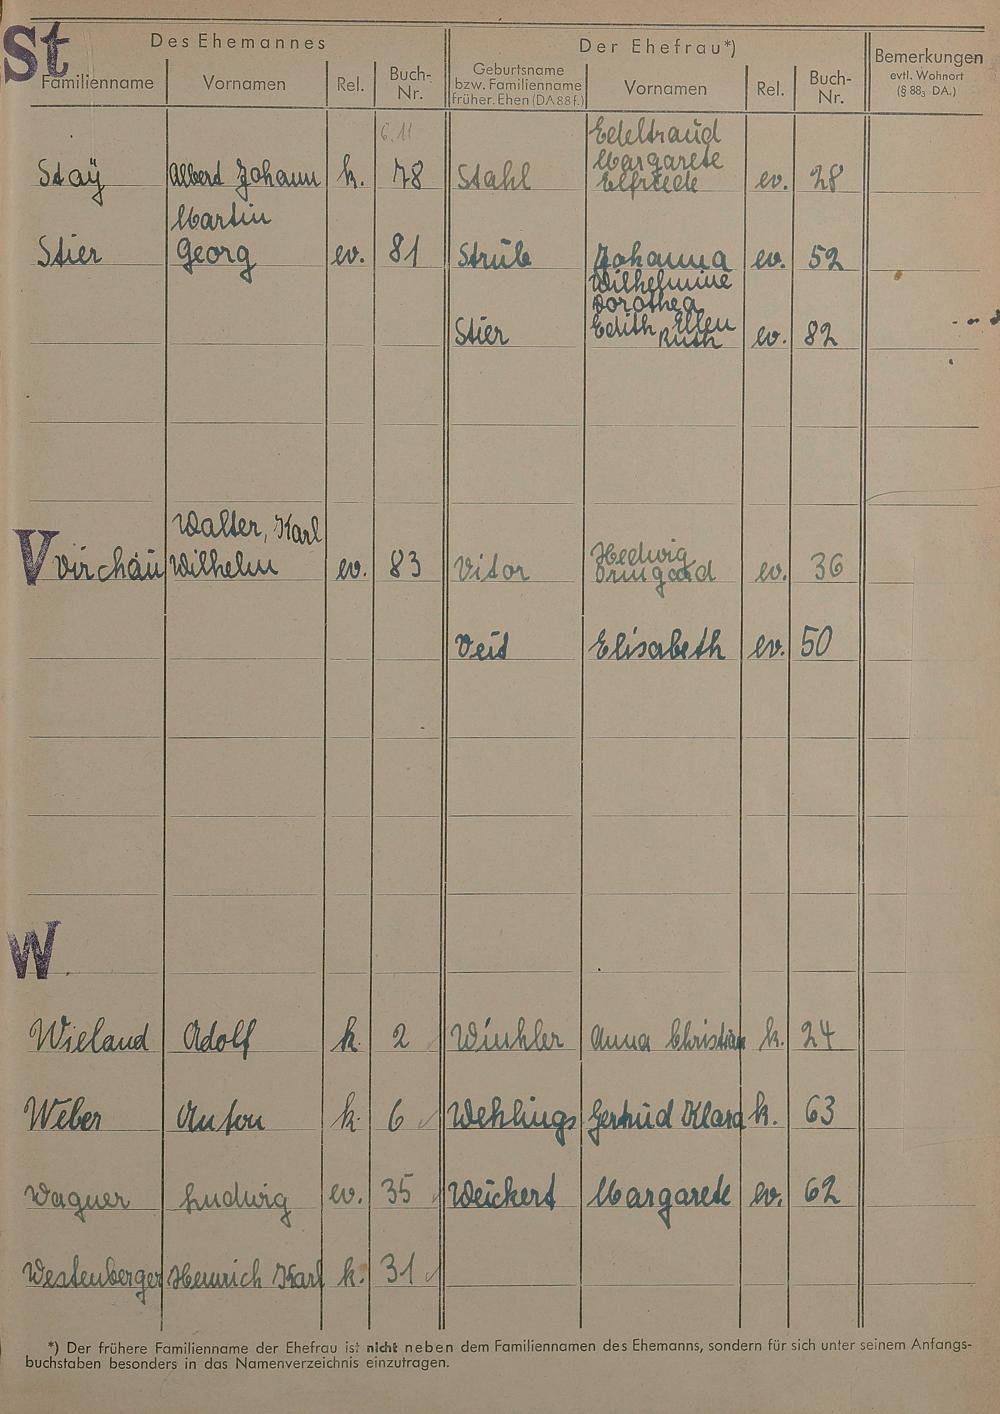 St
Des Ehemannes
Der Ehefrau*)
Bemerkungen
evtl. Wohnort
(§ 88₃ DA.)
Familienname Vornamen Rel. Buch-Nr.
Geburtsname
bzw. Familienname
früher. Ehen (DA 88 f.)
Vornamen Rel. Buch-Nr.
6.11
Edeltraud
Margarete
Staÿ Albert Johann k. 78 Stahl Elfriede ev. 28
Martin
Stier Georg ev. 81 Strüb Johanna ev. 52
Wilhelmine
Dorothea
Edith Ellen
Stier Ruth ev. 82
Walter, Karl
Hedwig
V Virchau Wilhelm ev. 83 Vitor Irmgard ev. 36
Veit Elisabeth ev. 50
W
Wieland Adolf k. 2 Winkler Anna Christian k. 24
Weber Anton k. 6 Wehlings Gertrud Klara k. 63
Wagner Ludwig ev. 35 Weickert Margarete ev. 62
Westenberger Heinrich Karl k. 31
*) Der frühere Familienname der Ehefrau ist nicht neben dem Familiennamen des Ehemanns, sondern für sich unter seinem Anfangs-
buchstaben besonders in das Namenverzeichnis einzutragen.